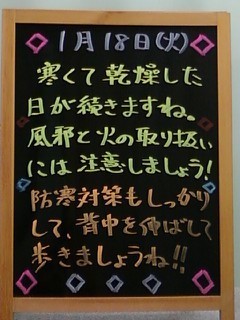 1月18日(火)
寒くて乾燥した
日が続きますね。
風邪と火の取り扱い
には注意しましょう!
防寒対策もしっかり
して、背中を伸ばして
歩きましょうね!!